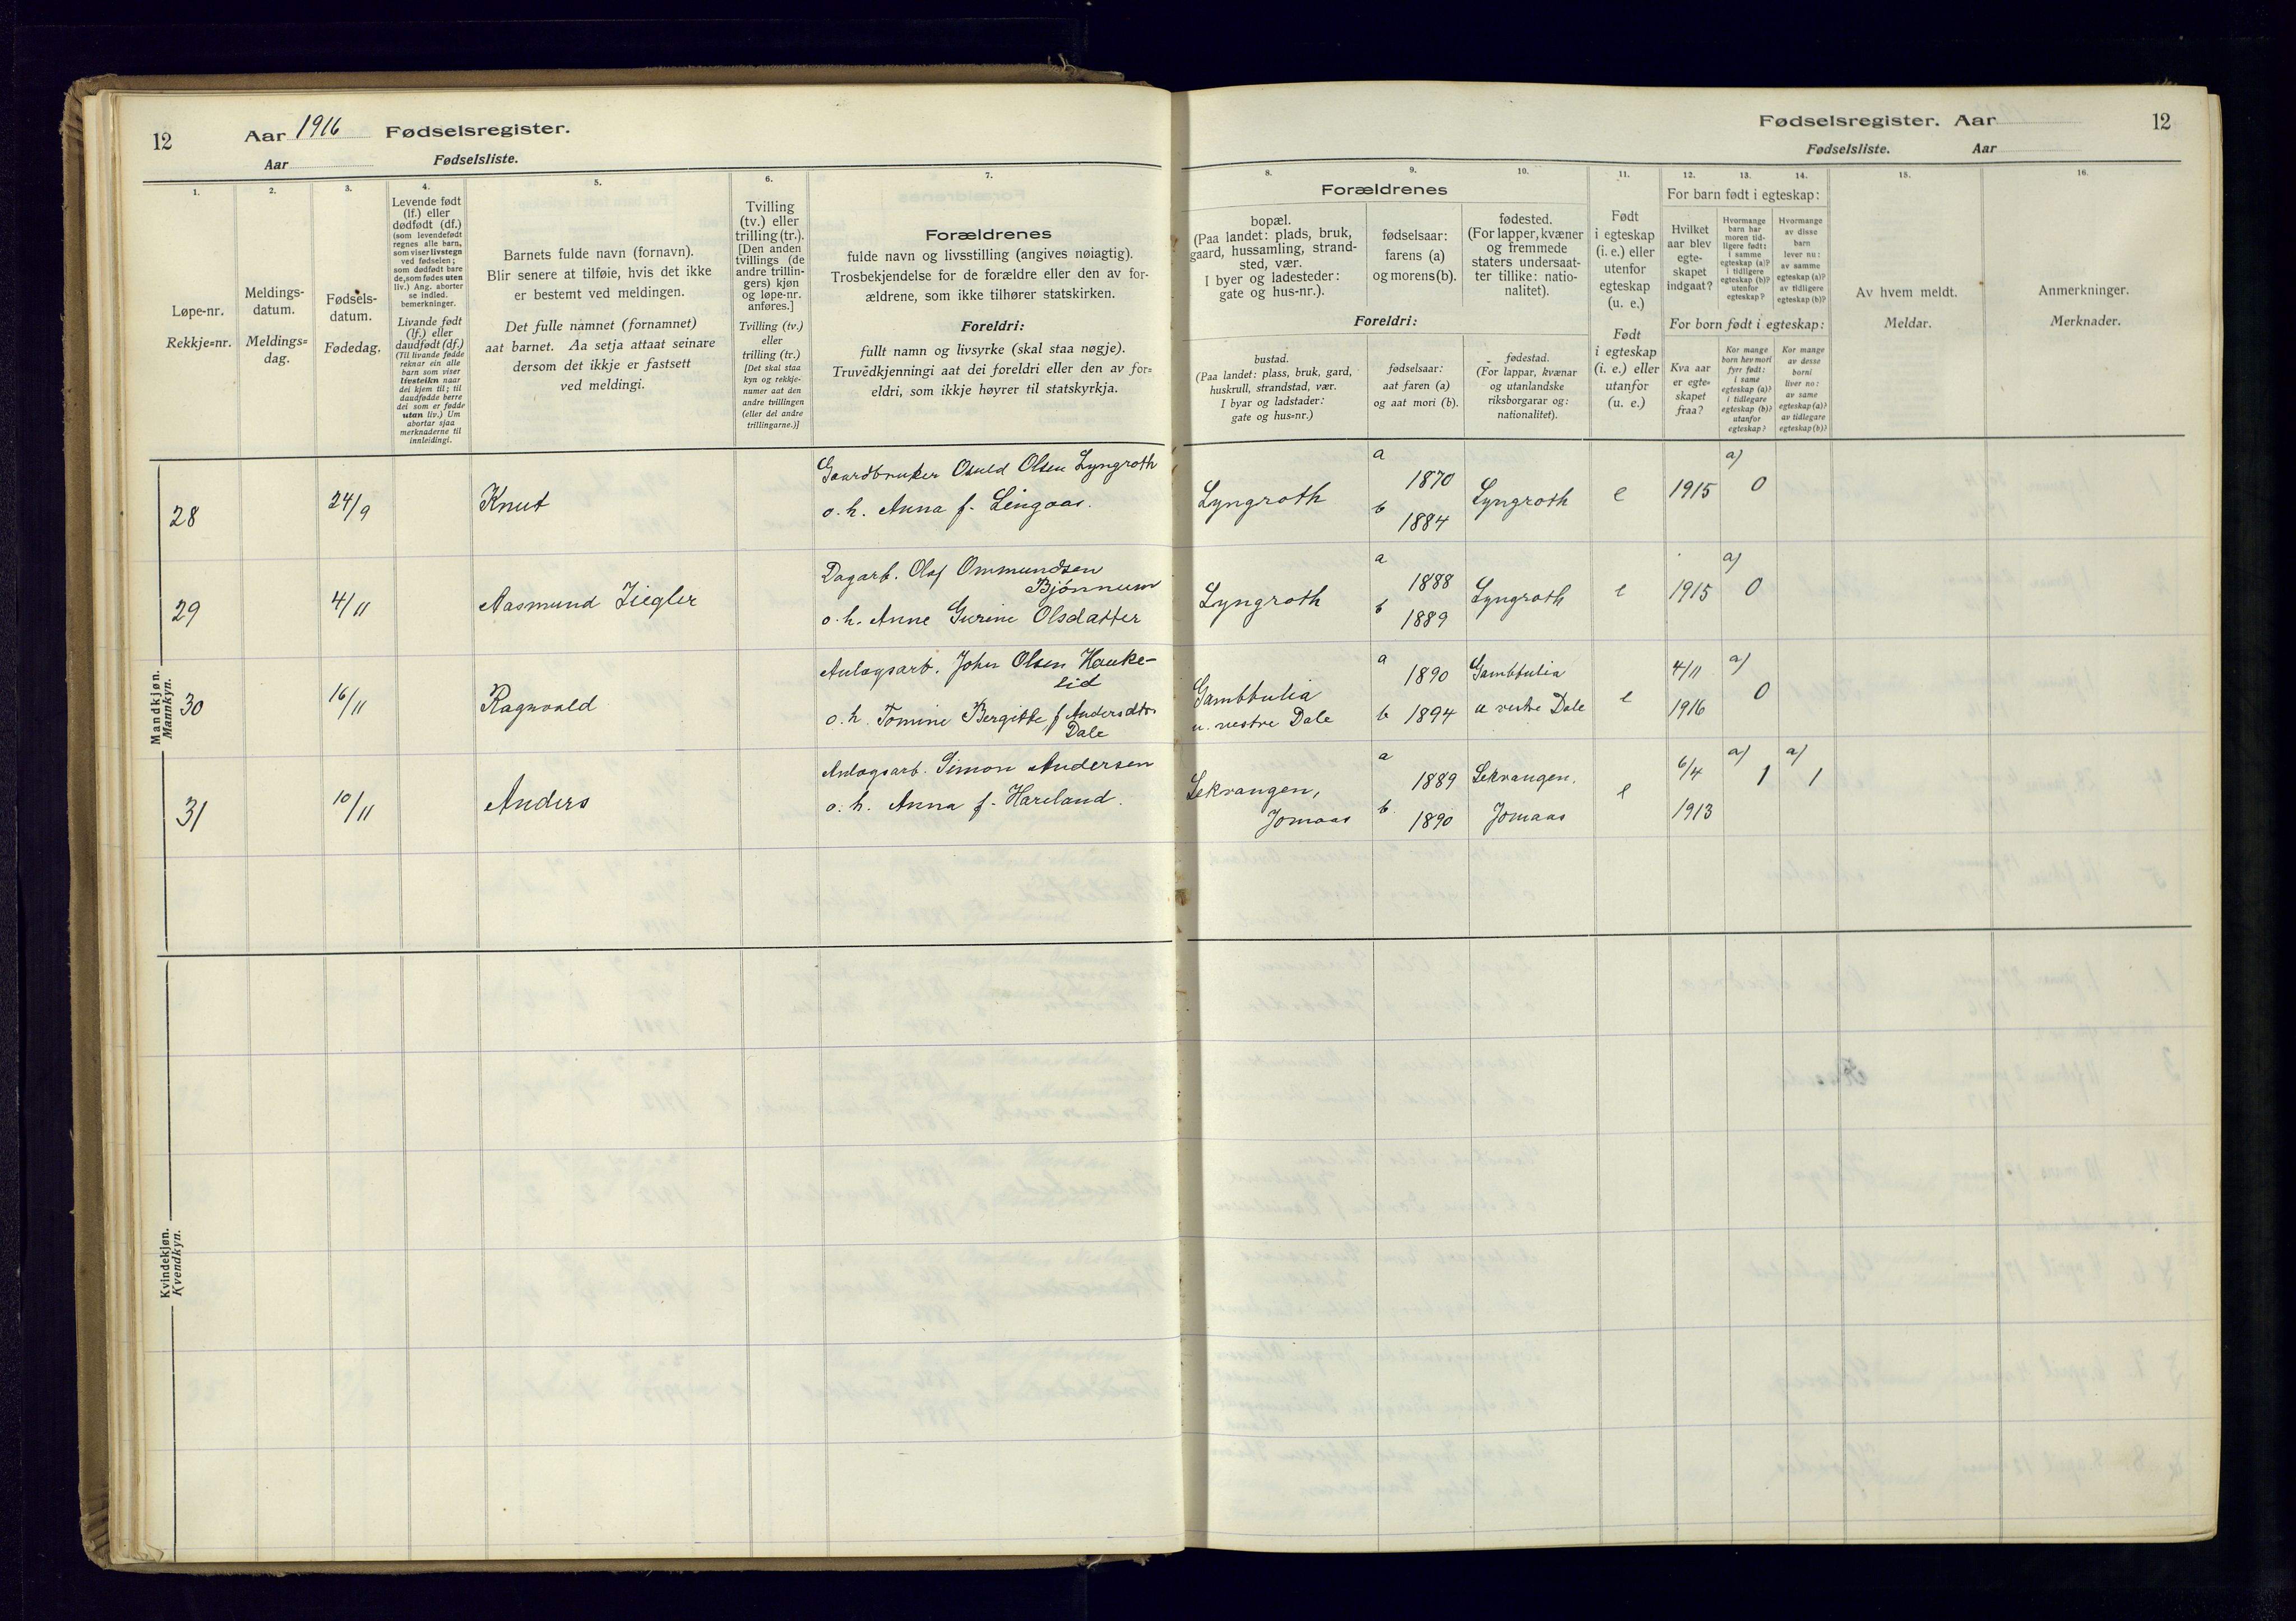 12
Aar 1916 Fødselsregister.
Aar Fødselsliste.
1.
Løpe-nr.
Rekkje=nr.
2.
Meldings-
datum.
Meldings=
dag.
3.
Fødsels-
datum.
Fødedag.
4.
Levende født
(lf.) eller
dødfødt (df.)
(som levendefødt
regnes alle barn,
som viser livstegn
ved fødselen;
som dødfødt bare
de, som fødes uten
liv.) Ang. aborter
se indled.
bemerkninger.
Livande født
(lf.) eller
daudfødt (df.)
(Til livande fødde
reknar ein alle
barn som viser
livsteikn naar
dei kjem til; til
daudfødde berre
dei som er fødde
utan liv.) Um
abortar sjaa
merknaderne til
innleidingi.
5.
Barnets fulde navn (fornavn).
Blir senere at tilføie, hvis det ikke
er bestemt ved meldingen.
Det fulle namnet (fornamnet)
aat barnet. Aa setja attaat seinare
dersom det ikkje er fastsett
ved meldingi.
6.
Tvilling
(tv.) eller
trilling (tr.).
[Den anden
tvillings (de
andre trillin-
gers) kjøn
og løpe-nr.
anføres.]
Tvilling (tv.)
eller
trilling (tr.)
[Det skal staa
kyn og rekkje-
numer aat den
andre tvillingen
(eller dei andre
trillingarne.)]
7.
Forældrenes
fulde navn og livsstilling (angives nøiagtig).
Trosbekjendelse for de forældre eller den av for-
ældrene, som ikke tilhører statskirken.
Foreldri:
fullt namn og livsyrke (skal staa nøgje).
Truvedkjenningi aat dei foreldri eller den av for=
eldri, som ikkje høyrer til statskyrkja.
Mandkjøn.
Mannkyn.
28
24/9
Knut
Gaardbruker Osuld Olsen Lyngroth
o. h. Anna f. Lingaas.
29
4/11
Aasmund Ziegler
Dagarb. Olaf Ommundsen
Bjønnum
o. h. Anne Gurine Olsdatter
30
16/11
Ragnvald
Anlægsarb. John Olsen Hauke-
lid
o. h. Tomine Bergitte f Andersdtr.
Dale
31
10/11
Anders
Anlægsarb. Simon Andersen
o. h. Anna f. Hareland.
Kvindekjøn.
Kvendkyn.
Fødselsregister. Aar
12
Fødselsliste. Aar
8.
Forældrenes
bopæl.
(Paa landet: plads, bruk,
gaard, hussamling, strand-
sted, vær.
I byer og ladesteder:
gate og hus-nr.).
Foreldri:
bustad.
(Paa landet: plass, bruk, gard,
huskrull, strandstad, vær.
I byar og ladstader:
gate og hus=nr.)
9.
fødselsaar:
farens (a)
og morens (b).
fødselsaar:
aat faren (a)
og aat mori (b).
10.
fødested.
(For lapper, kvæner
og fremmede
staters undersaat-
ter tillike: natio-
nalitet).
fødestad.
(For lappar, kvænar
og utanlandske
riksborgarar og:
nationalitet).
11.
Født
i egteskap
(i. e.) eller
utenfor
egteskap
(u. e.)
Født
i egteskap
(i. e.) eller
utanfor
(u. e.)
12. 13. 14.
For barn født i egteskap:
Hvilket
aar blev
egte-
skapet
indgaat?
Hvormange
barn har
moren tid-
ligere født:
i samme
egteskap (a)?
i tidligere
egteskap (b)?
utenfor
egteskap?
Hvormange
av disse
barn
lever nu:
av samme
egteskap (a)?
av tidligere
egteskap (b)?
For born født i egteskap:
Kva aar
er egte=
skapet
fraa?
Kor mange
born hev mori
fyrr født:
i same
egteskap (a)?
i tidlegare
egteskap (b)?
utanfor
egteskap?
Kor mange
av desse
borni
liver no:
av same
egteskap (a)?
av tidlegare
egteskap (b)?
15.
Av hvem meldt.
Meldar.
16.
Anmerkninger.
Merknader.
Lyngroth
a 1870
b 1884
Lyngroth
e
1915
a) 0
Lyngroth
a 1888
b 1889
Lyngroth
e
1915
a) 0
u. vestre Dale
a 1890
b 1894
u vestre Dale
e
4/11
1916
a) 0
Lekvangen,
Jomaas
a 1889
b. 1890
Lekvangen.
Jomaas
e
6/4
1913
a) 1
a) 1